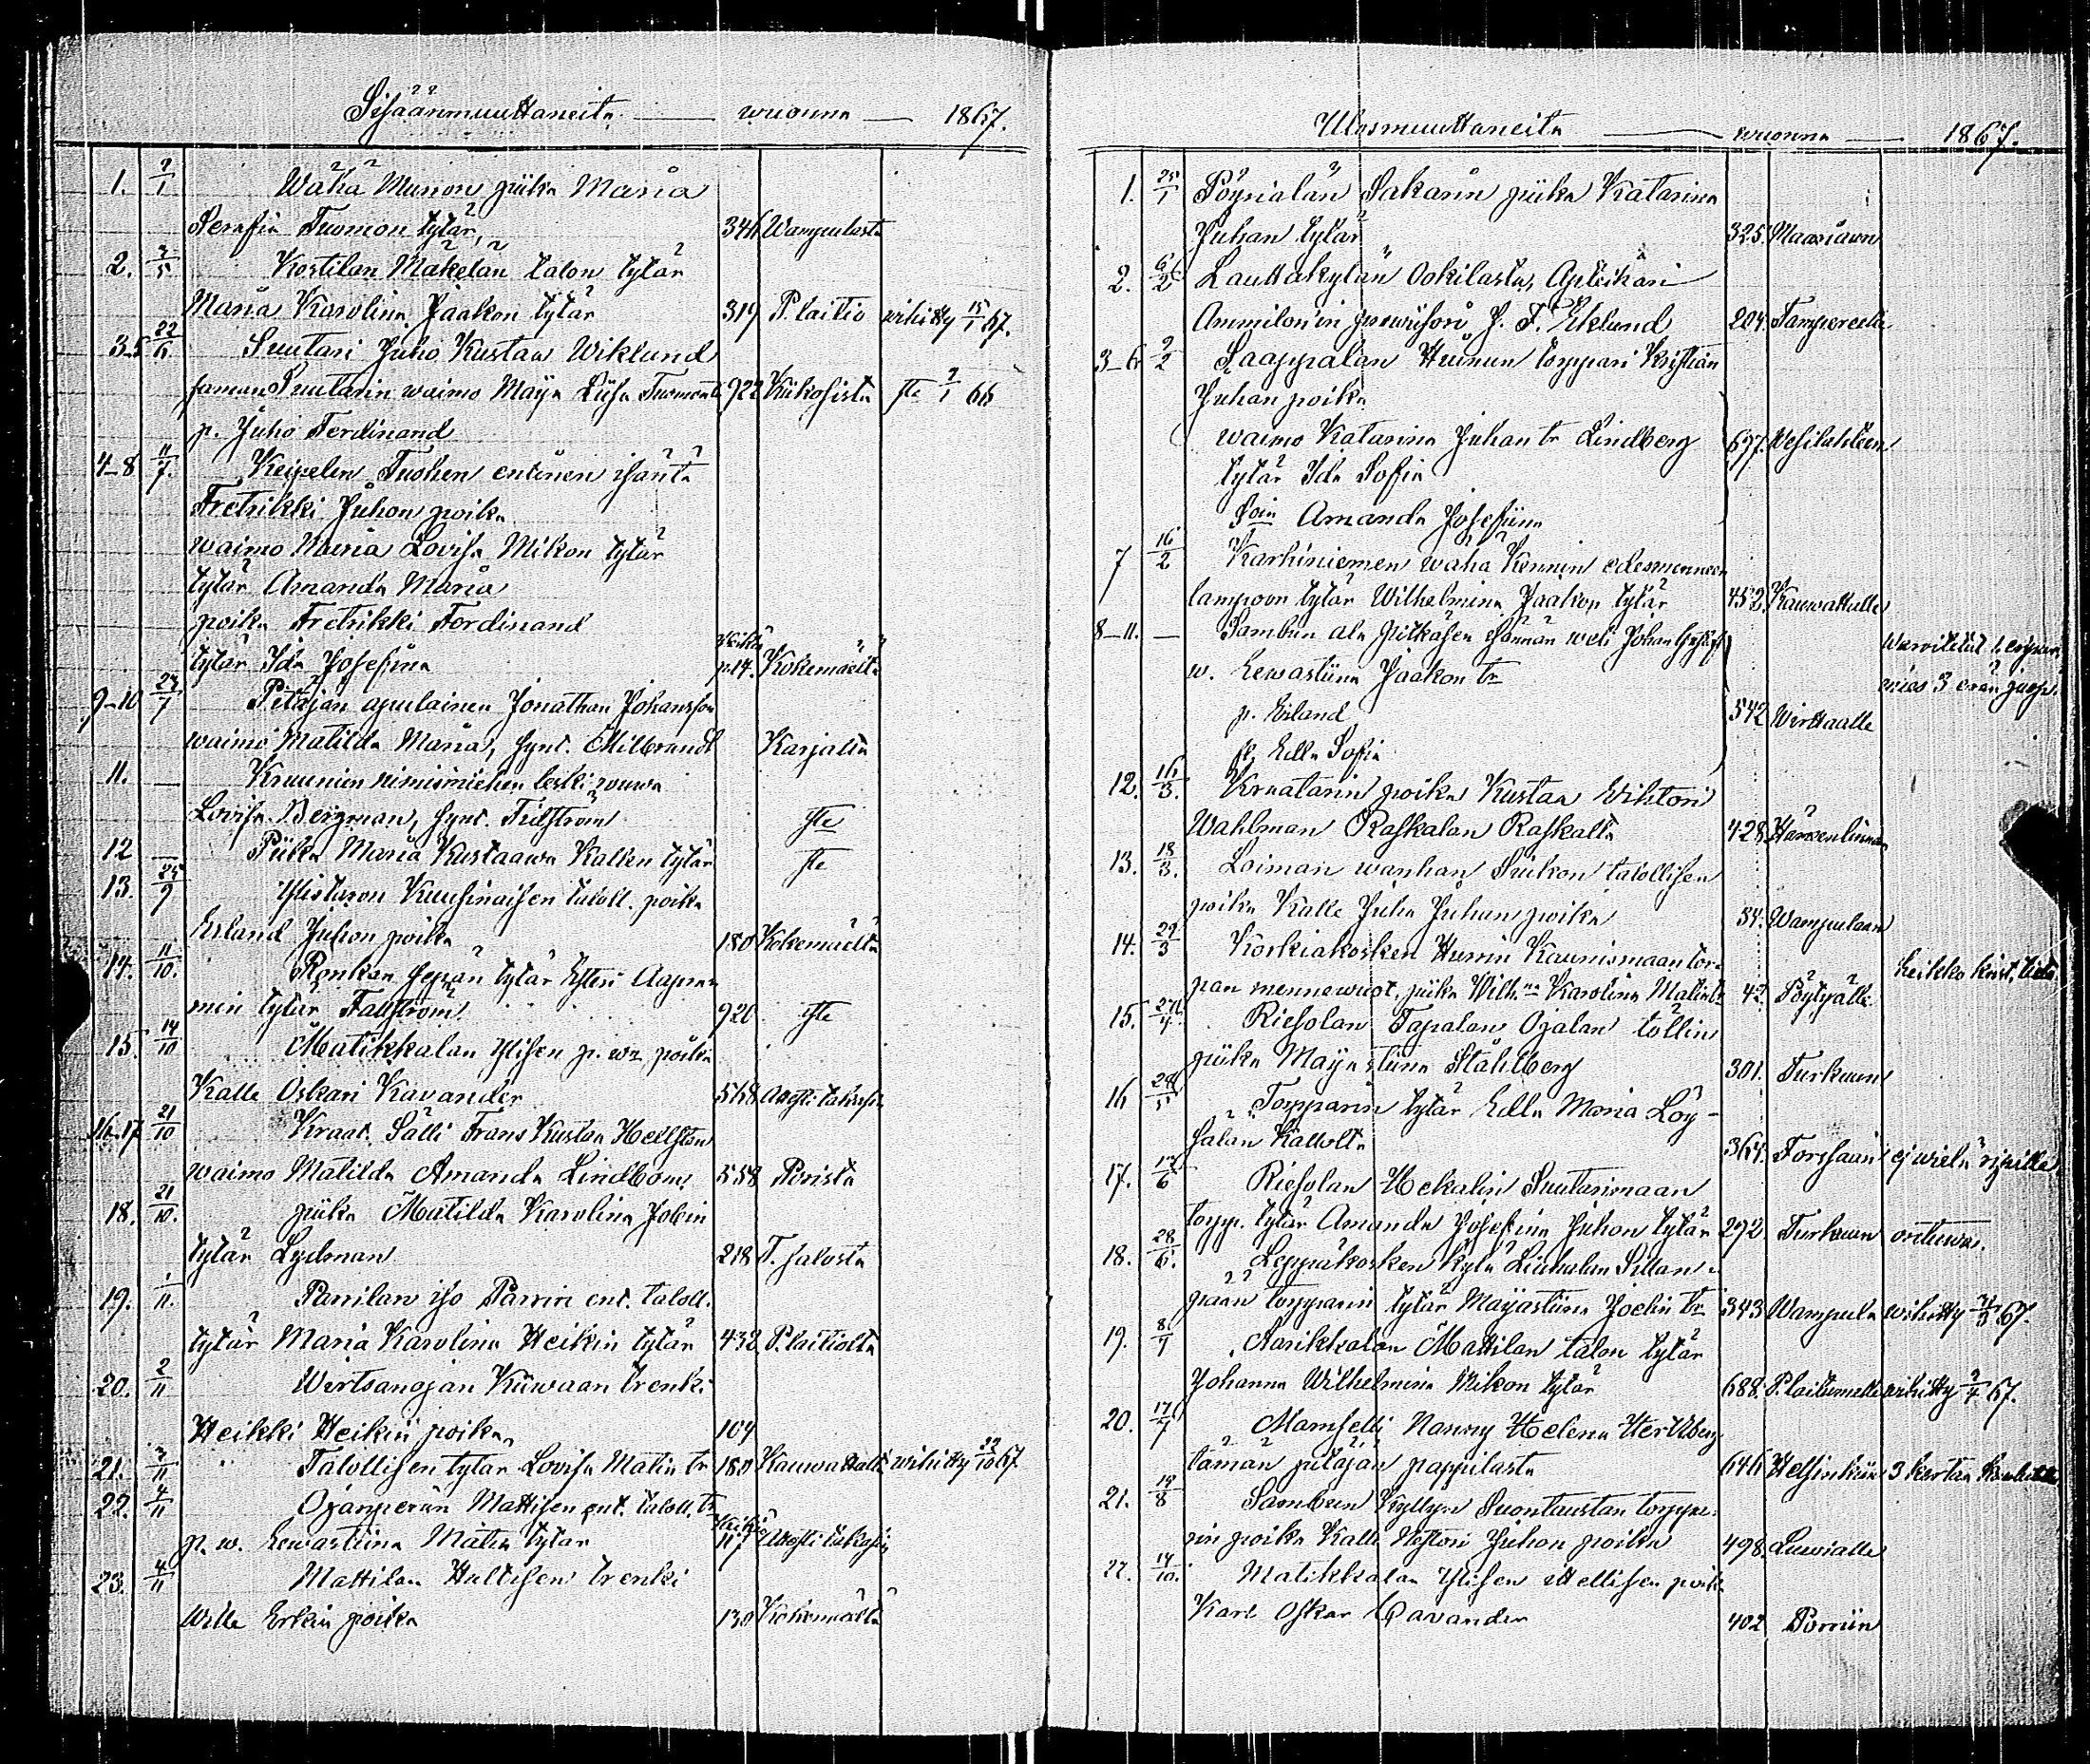 Sisäänmuuttaneita wuonna 1867.
1. 2/1 Wähä Munon piika Maria
Serafia Tuomon tytär, 346 Wampulasta
2. 2/5 Kostilan Mäkelän talon tytär
Maria Karolina Jaakon tytär 319 P. laitio wihitty 15/1 67.
3-5 22/6 Suutari Juho Kustaw Wiklund
saman Suutarin waimo Maija Liisa Tuomont 922 Kiikosista
p. Juho Ferdinand
4-8 11/7. Keipelin Tuohen entinen isäntä
Fretrikki Juhon poika
waimo Maria Lovisa Mikon tytär
tytär Amanda Maria
poika Fretrikki Ferdinand
tytär Ida Josefina p.14. Kokemäeltä
9-10 23/7 Petäjän apulainen Jonathan Johansson
waimo Matilda Maria, synt. Milbrandt Karjalta
11. — Kruunun nimismiehen leski rouwa
Lovisa Bergman, synt. Tidström
12 — Piika Maria Kustaawa Kallen tytär
13. 24/9 Ylistaron Kuusinaisen taloll. poika
Erland Juhon poika 180 Kokemäeltä
14. 11/10. Ronkan sepän tytär Esteri Aapra-
min tytär Fallström 920
15. 14/10 Matikkalan Ylisen p. w. poika
Kalle Oskari Kavander 568
16-17 21/10 Kraat. Sälli Frans Kustaa Hellsten
waimo Matilda Amanda Lindbom 558 Porista
18. 21/10. piika Matilda Karolina Jobin
tytär Lydman 218 T. salosta
19. 1/11. Parrilan iso Parrin ent. taloll.
tytär Maria Karolina Heikin tytär 432 P. laitiolta
20. 2/11 Wirtsanojan Kiiwaan trenki
Heikki Heikin poika 109
21. 3/11 Talollisen tytär Lovisa Matin tr 180 Kauwatsalta wihitty 29/10 67
22. 4/11 Ojanperän Mattisen ent. taloll. tr
p. w. Eewastiina Matin tytär 117
23. 4/11 Mattilan Hultisen trenki
Wille Erkin poika 130 Kokemäeltä
Ulosmuuttaneita wuonna 1867.
1. 25/1 Pöyriälän Sakarin piika Katarina
Juhan tytär 325. Maariaan
2. 6/2 Lauttakylän Ookilasta, Apteikari
Ammilonin prowiisori J. F. Eklund 204. Tampereella
3-6 9/2 Saappalan Heinun torppari Kristian
Juhan poika
waimo Katarina Juhan tr Lindberg 697. Wesilahteen
tytär Ida Sofia
Amanda Josefiina
7 16/2 Karhiniemen wähä Kennin edesmenneen
lampoon tytär Wilhelmina Jaakop tytär 452. Kauwattalle
8-11. — Sambun ala Pitkäsen isännän weli Johan
w. Eewastiina Jaakon tr
p. Erland 542 Wirttaalle
Edla Sofia
12. 16/3. Kraatarin poika Kustaa Wihtori
Wahlman Raskalan Raskalta 428. Hämeenlinnan
13. 18/3. Loiman wanhan Siikon talollisen
poika Kalle Juha Juhan poika 34. Wampulaan
14. 29/3 Korkiakosken Hurrin Kaunismaan tor-
pan mennewuot. piika Wilh:na Karolina Matintr 42. Pöytyälle
15. 27/4. Riesolan Tapalan Ojalan töllin
piika Maijastiina Ståhlberg 301. Turkuun
16 28/5 Torpparin tytär Edla Maria Löy-
sälän Kallolta 364. Forssaan ej wielä ripille
17. 17/6 Riesolan Hekalin Suutarimaan
torpp. tytär Amanda Josefina Juhon tytär 292. Turkuun
18. 28/6. Leppäkosken kylä Liuhalan Sillan-
pään torpparin tytär Maijastiina Joelin tr 343 Wampula wihitty
19. 8/7 Karikkalan Mattilan talon tytär
Johanna Wilhelmina Mikon tytär 688. P. laitumelle wihitty 9/4 67.
20. 17/7 Mamselli Nanny Helena Hertzberg
tämän pitäjän pappilasta 646 Helsinkiin 3 kertan
21. 19/8 Sambun Kyllyn Suontaustan torppa-
rin poika Kalle Nestori Juhon poika 498. Luwialle
22. 14/10. Matikkalan Ylisen itellisen poika
Karl Oskar Cavander 402 Porriin